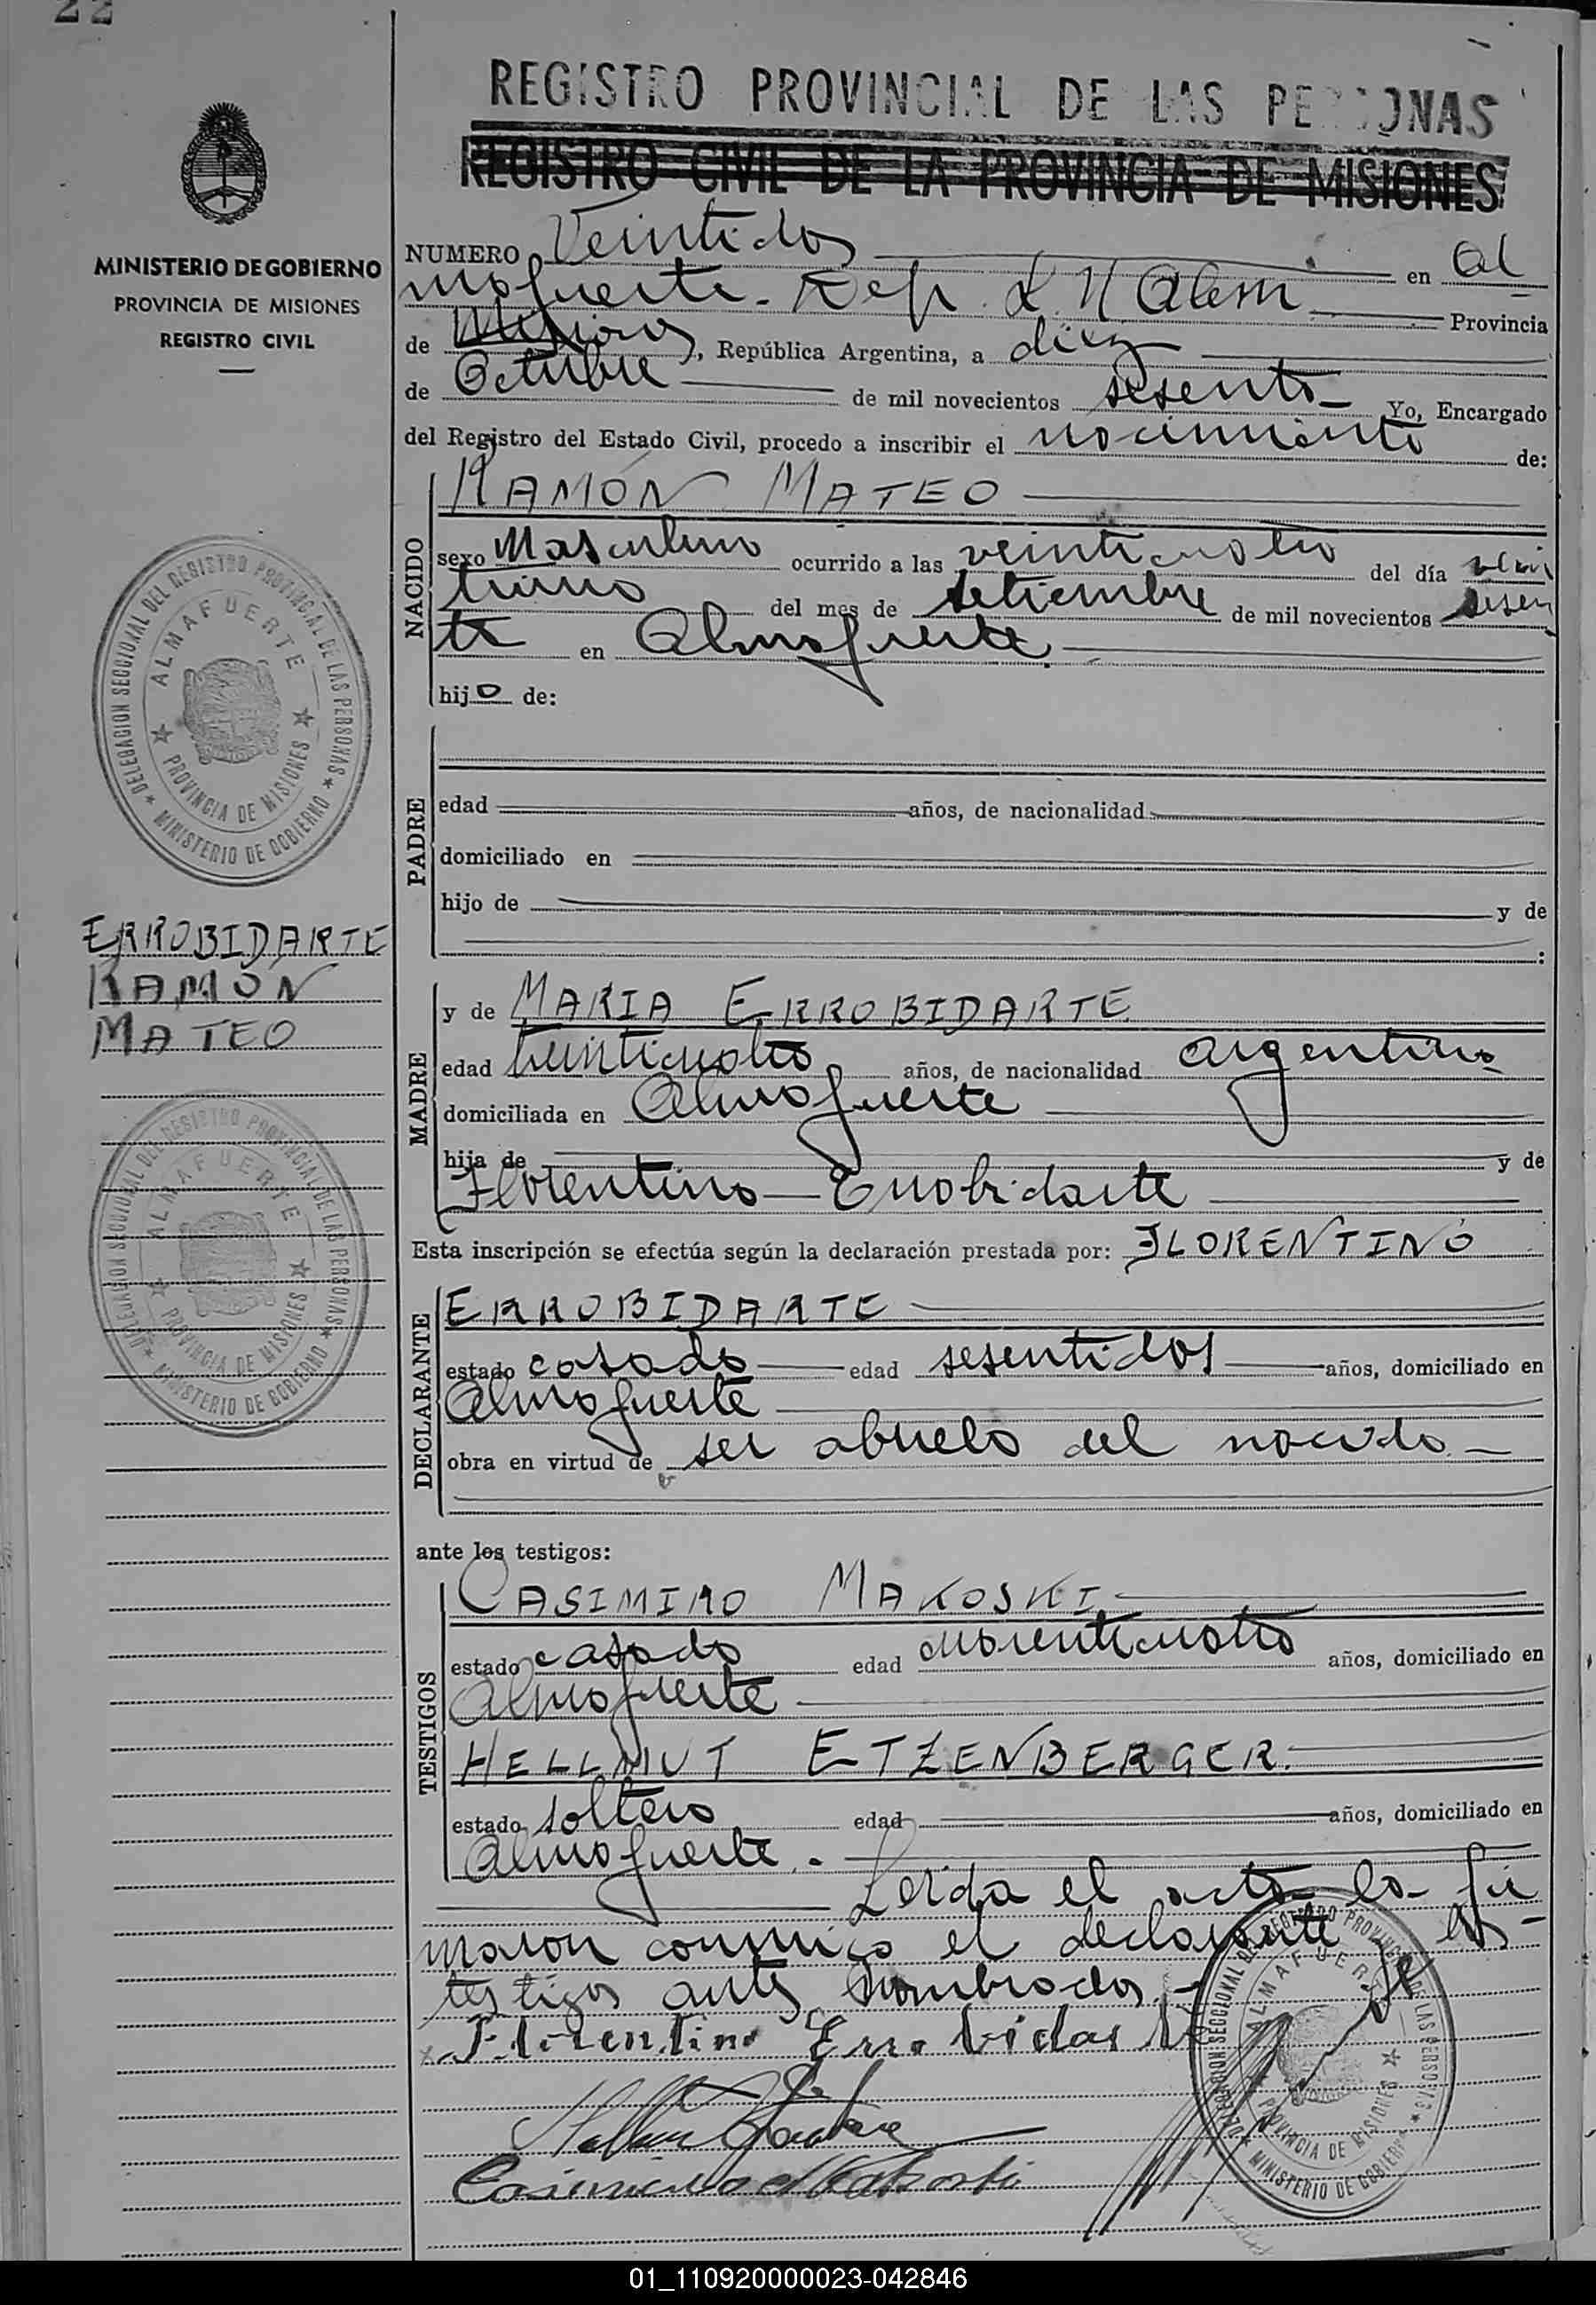 22
MINISTERIO DE GOBIERNO
PROVINCIA DE MISIONES
REGISTRO CIVIL
DELEGACION SECCIONAL DEL REGISTRO PROVINCIAL DE LAS PERSONAS
ALMAFUERTE
PROVINCIA DE MISIONES
MINISTERIO DE GOBIERNO
ERROBIDARTE
RAMÓN
MATEO
DELEGACION SECCIONAL DEL REGISTRO PROVINCIAL DE LAS PERSONAS
ALMAFUERTE
PROVINCIA DE MISIONES
MINISTERIO DE GOBIERNO
REGISTRO PROVINCIAL DE LAS PERSONAS
REGISTRO CIVIL DE LA PROVINCIA DE MISIONES
NUMERO Veintidos en Al
mafuerte - Dep. L N Alem Provincia
de Misiones, República Argentina, a diez
de Octubre de mil novecientos sesenta Yo, Encargado
del Registro del Estado Civil, procedo a inscribir el nacimiento de:
NACIDO
RAMÓN MATEO
sexo Masculino ocurrido a las veinticuatro del día vein
tiuno del mes de setiembre de mil novecientos sesen
ta en Almafuerte.
hijo de:
PADRE
edad años, de nacionalidad
domiciliado en
hijo de y de
:
MADRE
y de MARIA ERROBIDARTE
edad veinticuatro años, de nacionalidad argentina
domiciliada en Almafuerte
hija de y de
Florentino Errobidarte
Esta inscripción se efectúa según la declaración prestada por: FLORENTINO
DECLARANTE
ERROBIDARTE
estado casado edad sesentidos años, domiciliado en
Almafuerte
obra en virtud de ser abuelo del nacido -
ante los testigos:
TESTIGOS
CASIMIRO MAKOSKI
estado casado edad cuarenticuatro años, domiciliado en
Almafuerte
HELLMUT ETZENBERGER.
estado soltero edad años, domiciliado en
Almafuerte. -
Leída el acta la fir
maron conmigo el declarante y los
testigos antes nombrados. -
Florentino Errobidarte
Casimiro Makoski
DELEGACION SECCIONAL DEL REGISTRO PROVINCIAL DE LAS PERSONAS
ALMAFUERTE
PROVINCIA DE MISIONES
MINISTERIO DE GOBIERNO
01_110920000023-042846